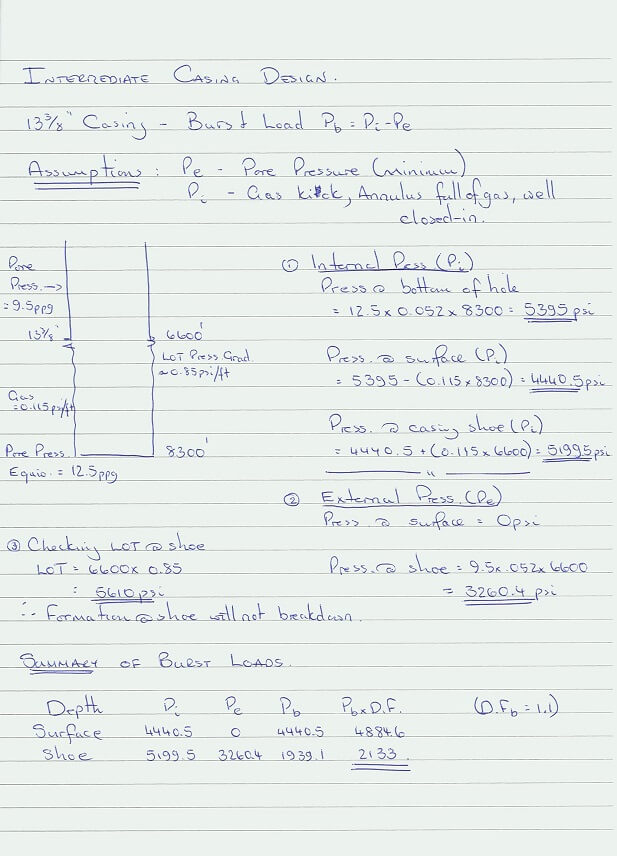 INTERMEDIATE CASING DESIGN.
13 3/8" Casing - Burst Load Pb = Pi - Pe
Assumptions : Pe - Pore Pressure (minimum)
Pi - Gas kick, Annulus full of gas, well
closed-in.
Pore
Press. →
= 9.5ppg
13 3/8"
6600'
LOT Press Grad.
≈ 0.85psi/ft
Gas
= 0.115psi/ft
Pore Press.
8300'
Equiv. = 12.5ppg
① Internal Press (Pi)
Press @ bottom of hole
= 12.5 x 0.052 x 8300 = 5395psi
Press. @ surface (Pi)
= 5395 - (0.115 x 8300) = 4440.5psi
Press. @ casing shoe (Pi)
= 4440.5 + (0.115 x 6600) = 5199.5psi
"
② External Press. (Pe)
Press. @ surface = 0psi
Press. @ shoe = 9.5 x .052 x 6600
= 3260.4 psi
③ Checking LOT @ shoe
LOT = 6600 x 0.85
= 5610 psi
∴ Formation @ shoe will not breakdown.
SUMMARY OF BURST LOADS.
Depth Pi Pe Pb Pb x D.F. (D.Fb = 1.1)
Surface 4440.5 0 4440.5 4884.6
Shoe 5199.5 3260.4 1939.1 2133